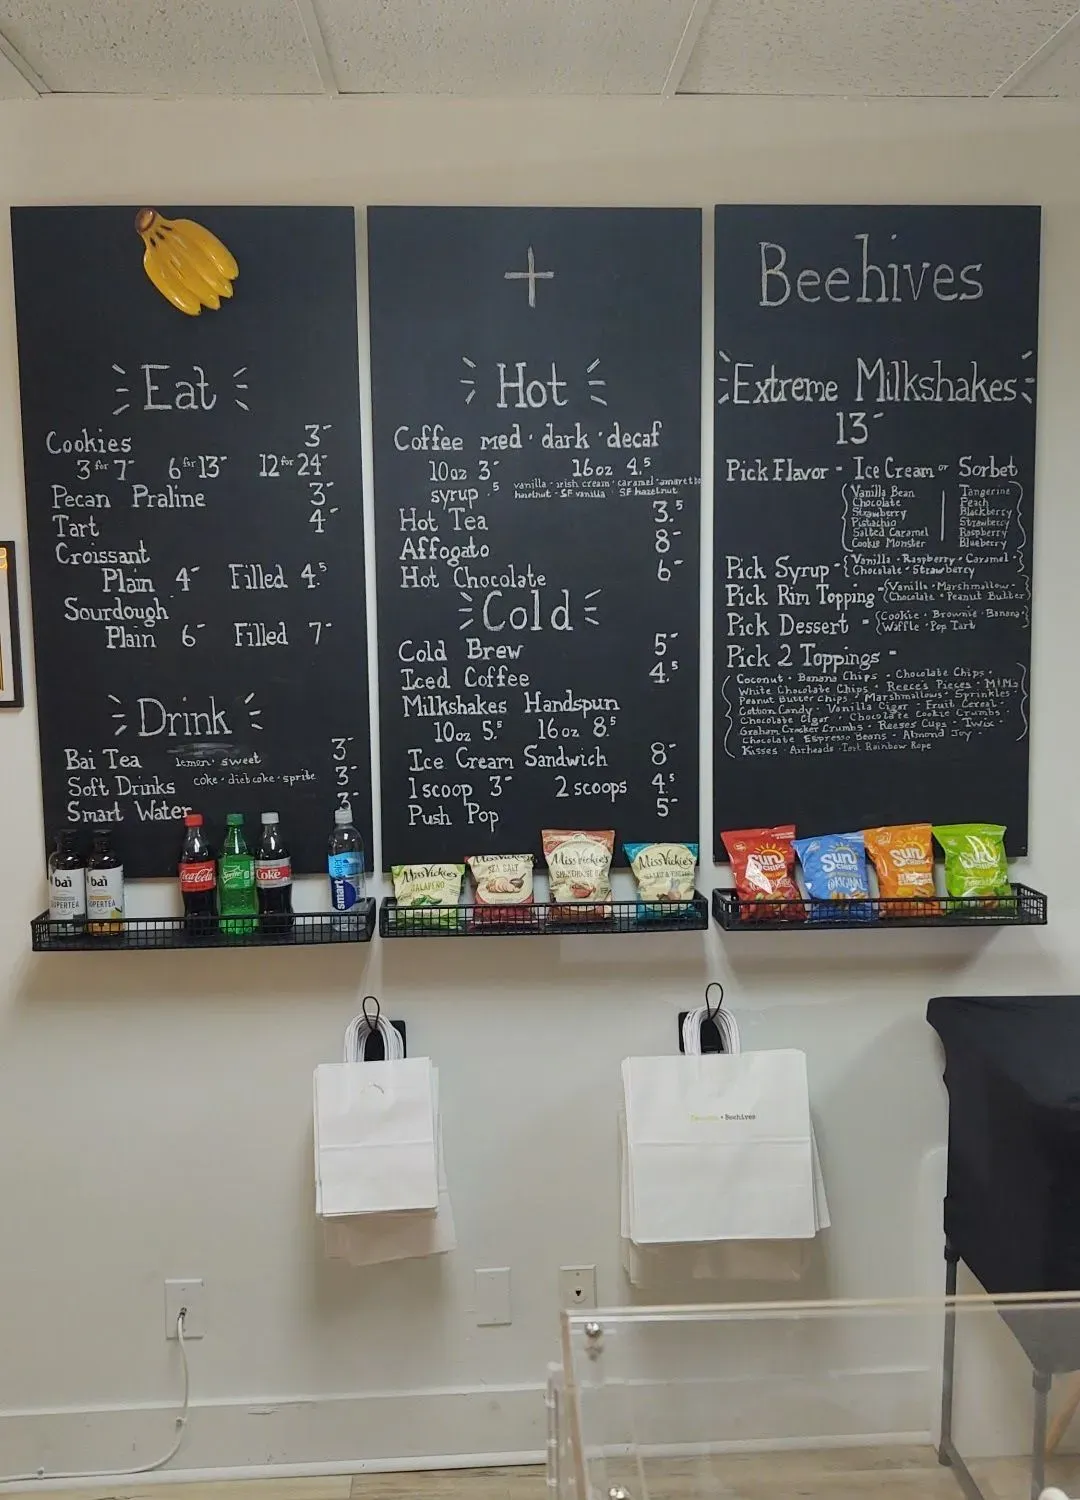 Eat
Cookies 3-
3 for 7- 6 for 13- 12 for 24-
Pecan Praline 3-
Tart 4-
Croissant
Plain 4- Filled 4.5
Sourdough
Plain 6- Filled 7-
Drink
Bai Tea lemon · sweet 3-
Soft Drinks coke · diet coke · sprite 3-
Smart Water 3-
+
Hot
Coffee med · dark · decaf
10oz 3- 16oz 4.5
syrup .5 vanilla · irish cream · caramel · amaretto
hazelnut · SF vanilla · SF hazelnut
Hot Tea 3.5
Affogato 8-
Hot Chocolate 6-
Cold
Cold Brew 5-
Iced Coffee 4.5
Milkshakes Handspun
10oz 5.5 16oz 8.5
Ice Cream Sandwich 8-
1 scoop 3- 2 scoops 4.5
Push Pop 5-
Beehives
Extreme Milkshakes
13-
Pick Flavor - Ice Cream or Sorbet
Vanilla Bean Tangerine
Chocolate Peach
Strawberry Blackberry
Pistachio Strawberry
Salted Caramel Raspberry
Cookie Monster Blueberry
Pick Syrup - Vanilla · Raspberry · Caramel ·
Chocolate · Strawberry
Pick Rim Topping - Vanilla · Marshmallow ·
Chocolate · Peanut Butter
Pick Dessert - Cookie · Brownie · Banana
Waffle · Pop Tart
Pick 2 Toppings -
Coconut · Banana Chips · Chocolate Chips ·
White Chocolate Chips · Reece's Pieces · M&Ms
Peanut Butter Chips · Marshmallows · Sprinkles ·
Cotton Candy · Vanilla Cigar · Fruit Cereal ·
Chocolate Cigar · Chocolate Cookie Crumbs ·
Graham Cracker Crumbs · Reeses Cups · Twix ·
Chocolate Espresso Beans · Almond Joy ·
Kisses · Airheads · Tart Rainbow Rope
bai
bai
Coca-Cola
Sprite
Coke
smart
Miss Vickie's
JALAPEÑO
Miss Vickie's
SEA SALT
Miss Vickie's
SMOKEHOUSE BBQ
Miss Vickie's
Sun
CHIPS
Sun
CHIPS
ORIGINAL
Sun
CHIPS
Sun
CHIPS
• Beehives